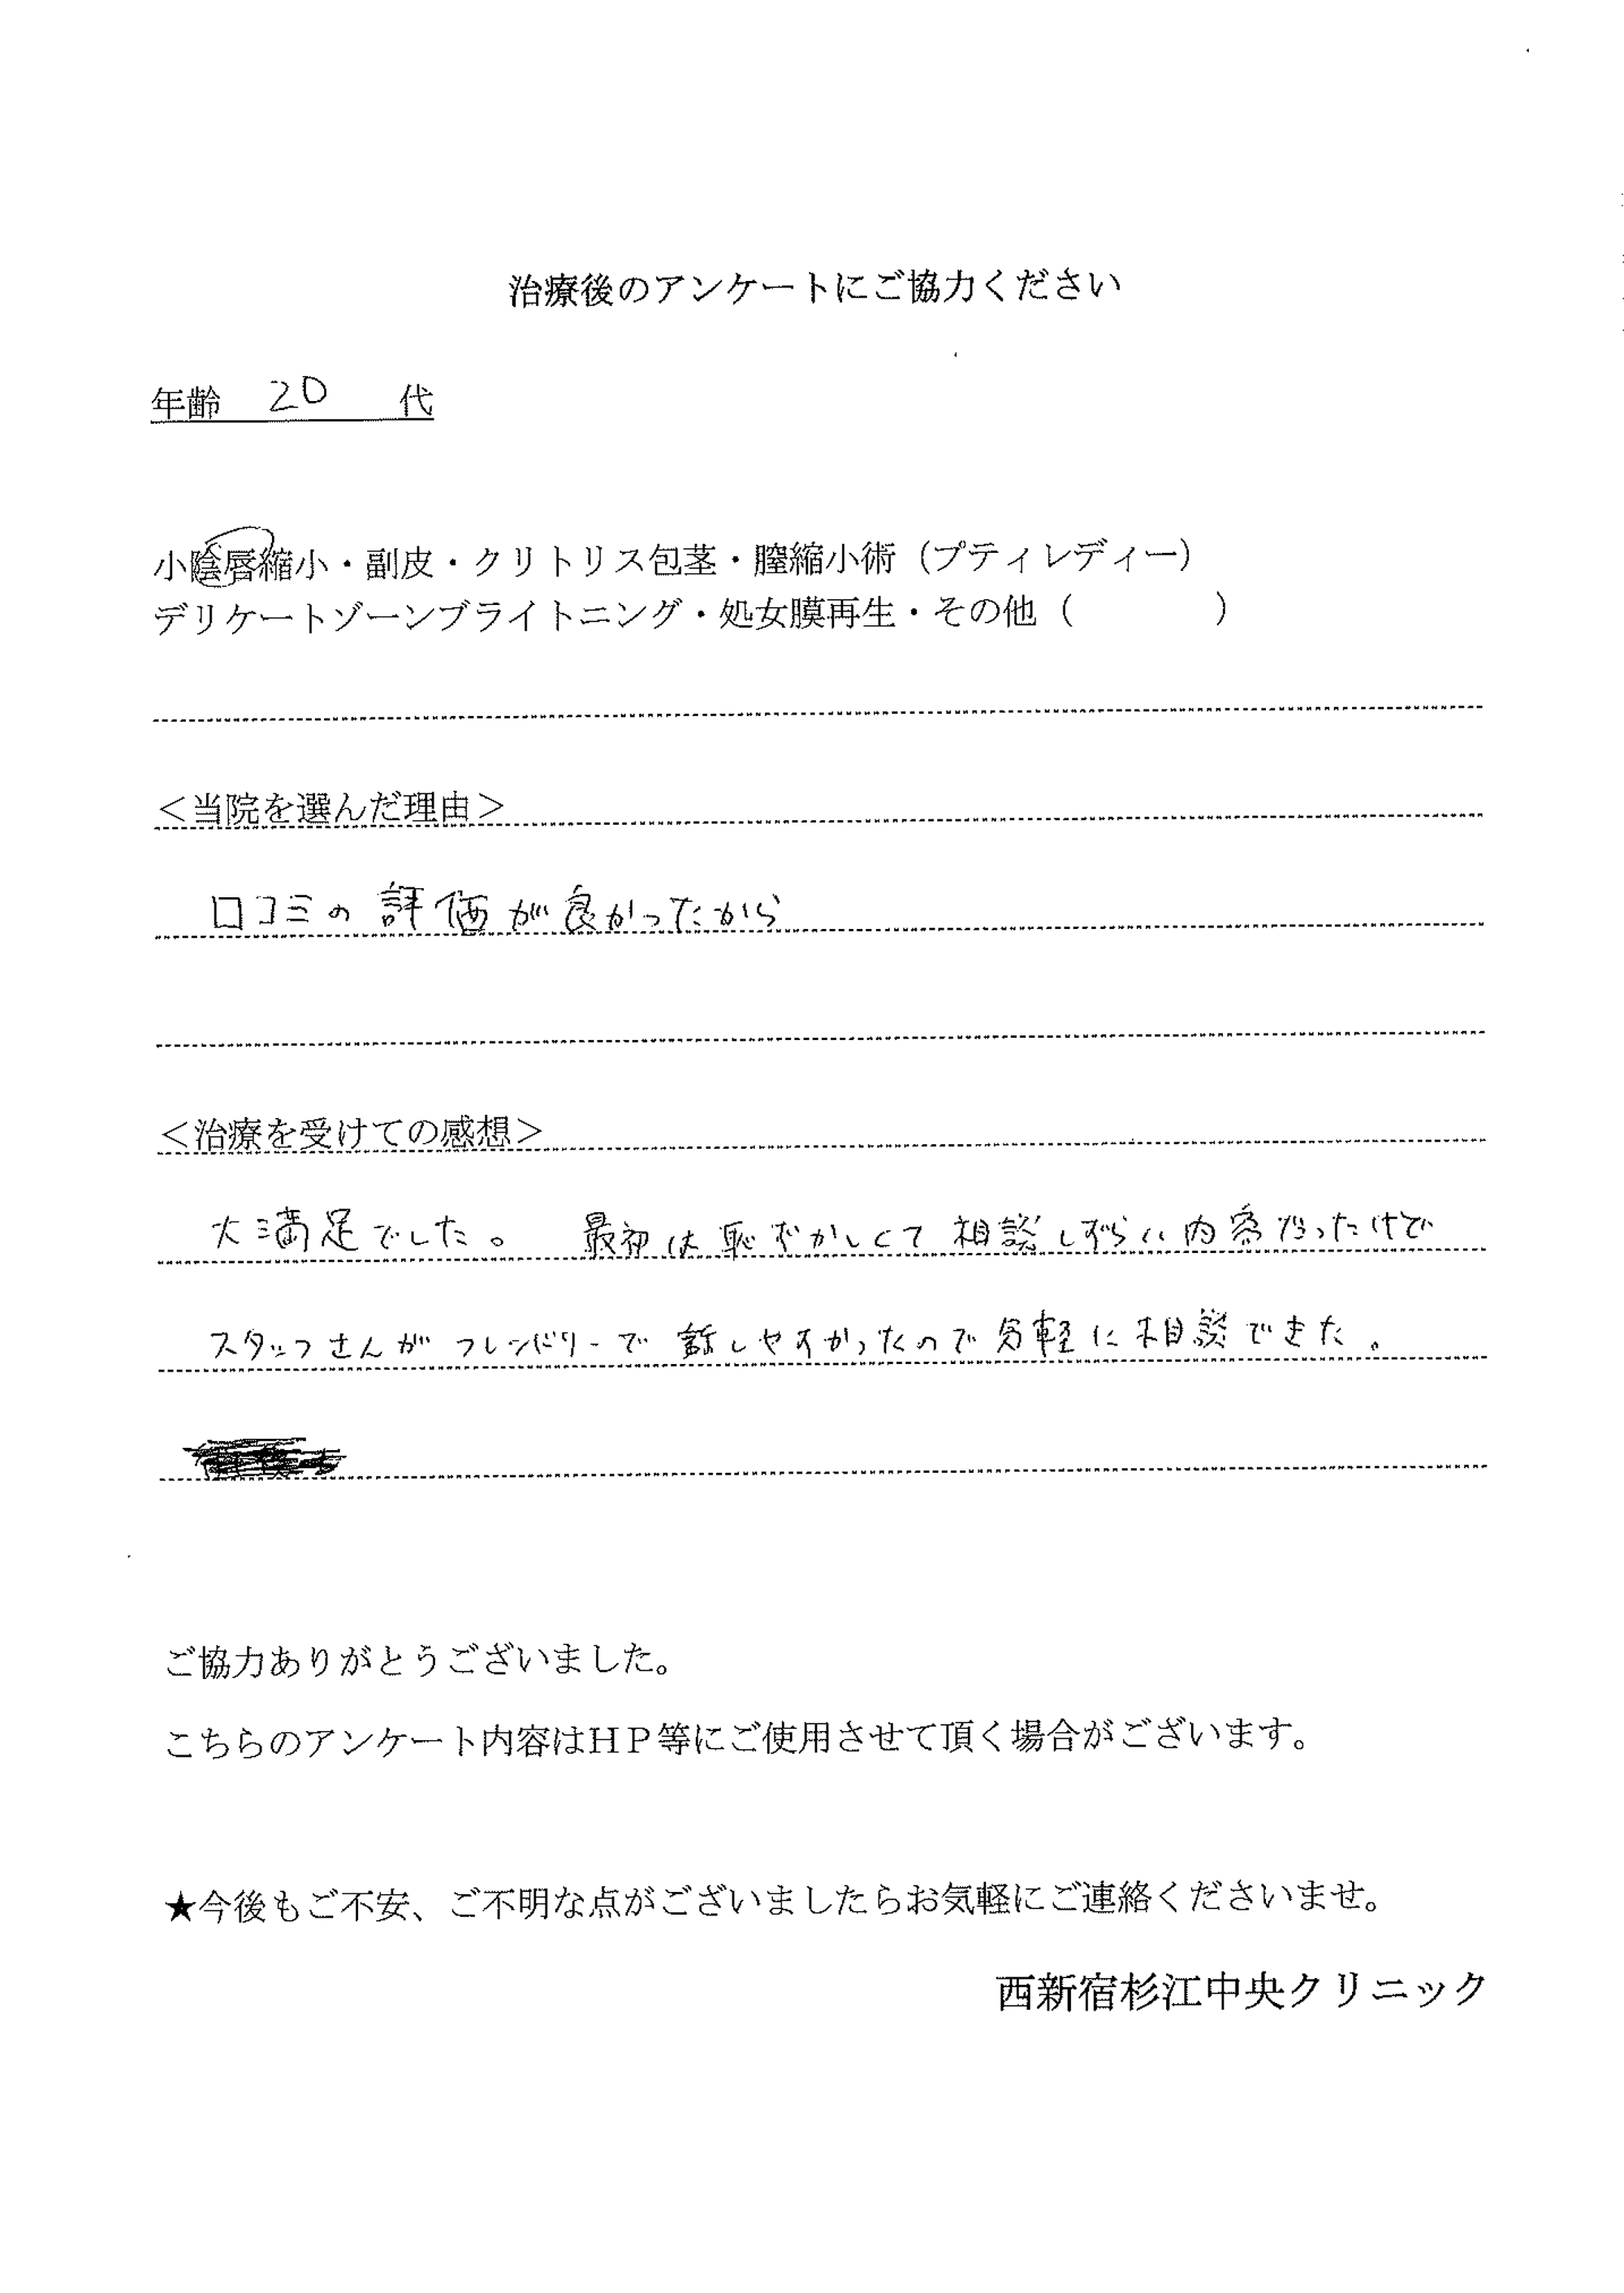 治療後のアンケートにご協力ください
年齢 20 代
小陰唇縮小・副皮・クリトリス包茎・膣縮小術（プティレディー）
デリケートゾーンブライトニング・処女膜再生・その他（　　　　）
＜当院を選んだ理由＞
口コミの評価が良かったから
＜治療を受けての感想＞
大満足でした。 最初は恥ずかしくて相談しずらい内容だったけど
スタッフさんがフレンドリーで話しやすかったので気軽に相談できた。
ご協力ありがとうございました。
こちらのアンケート内容はＨＰ等にご使用させて頂く場合がございます。
★今後もご不安、ご不明な点がございましたらお気軽にご連絡くださいませ。
西新宿杉江中央クリニック